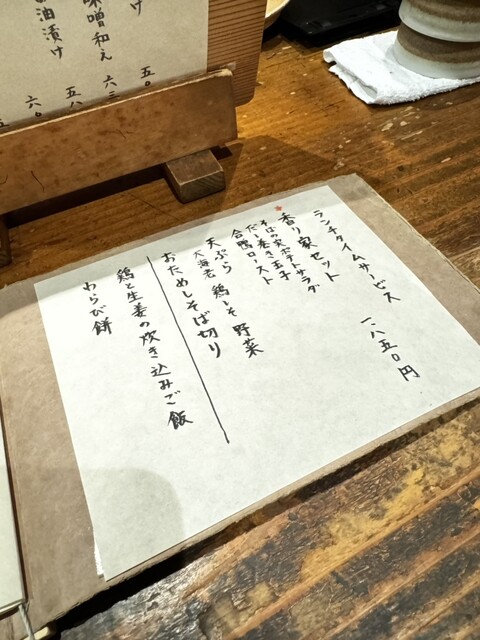 け
味噌和え
油漬け
五〇
六三
五八
六〇
ランチタイムサービス
一、八五〇円
香り家セット
そばの実ポテトサラダ
だし巻き玉子
合鴨ロースト
天ぷら
大海老 鶏しそ 野菜
おためしそば切り
鶏と生姜の炊き込みご飯
わらび餅